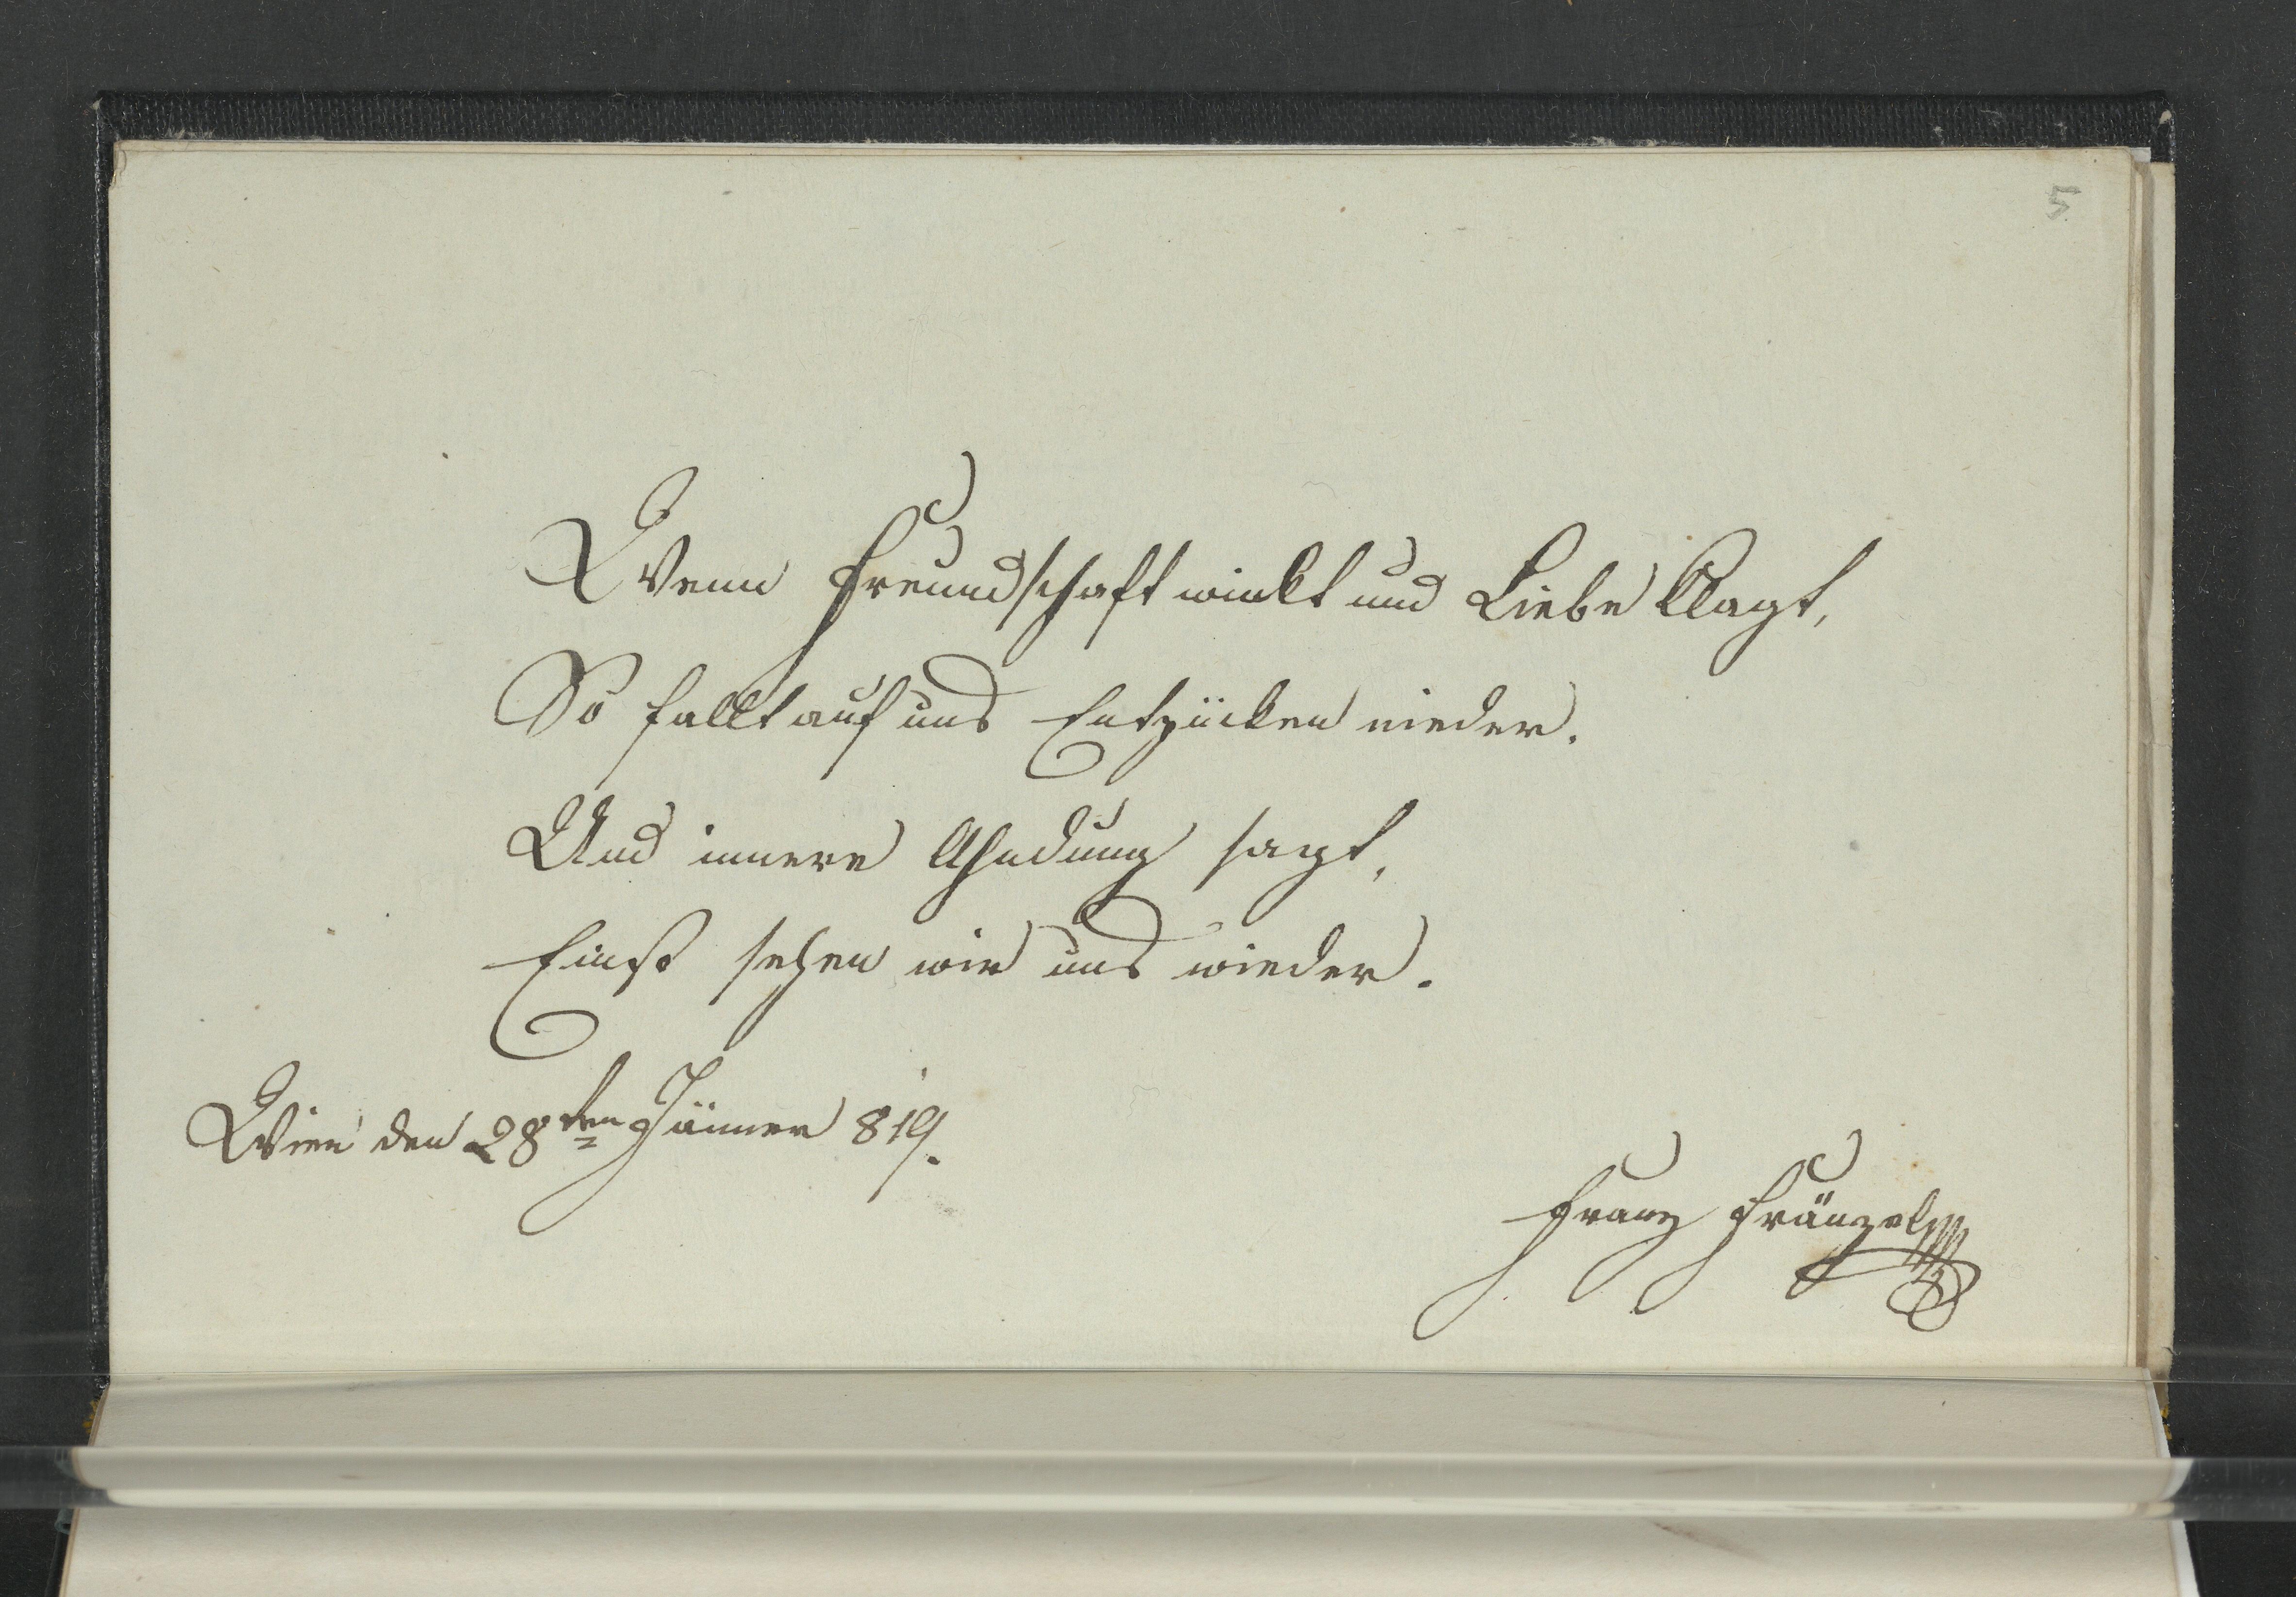 5
Wenn Freundschaft winkt und Liebe klagt,
So fallt auf uns Entzücken nieder.
Und innere Ahndung sagt,
Einst sehen wir uns wieder.
Wien den 28ten Jänner 819.
Franz Fränzel